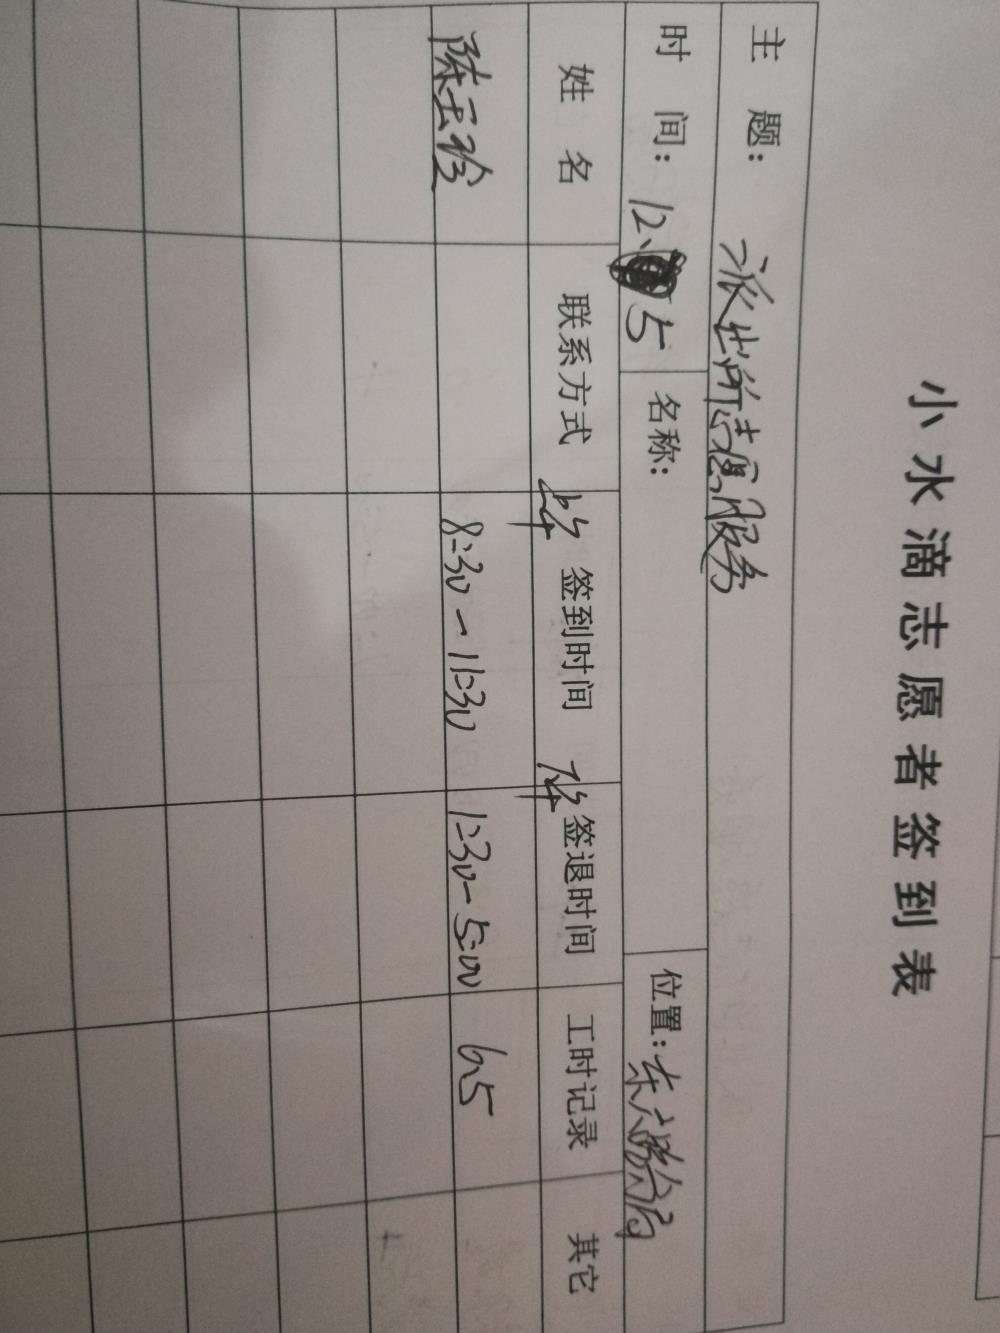 小水滴志愿者签到表
主 题： 派出所志愿服务
时 间：12、5 名称： 位置：东六路分局
姓 名 联系方式 上午 签到时间 下午 签退时间 工时记录 其它
陈云 8:30-11:30 1:30-5:00 6.5